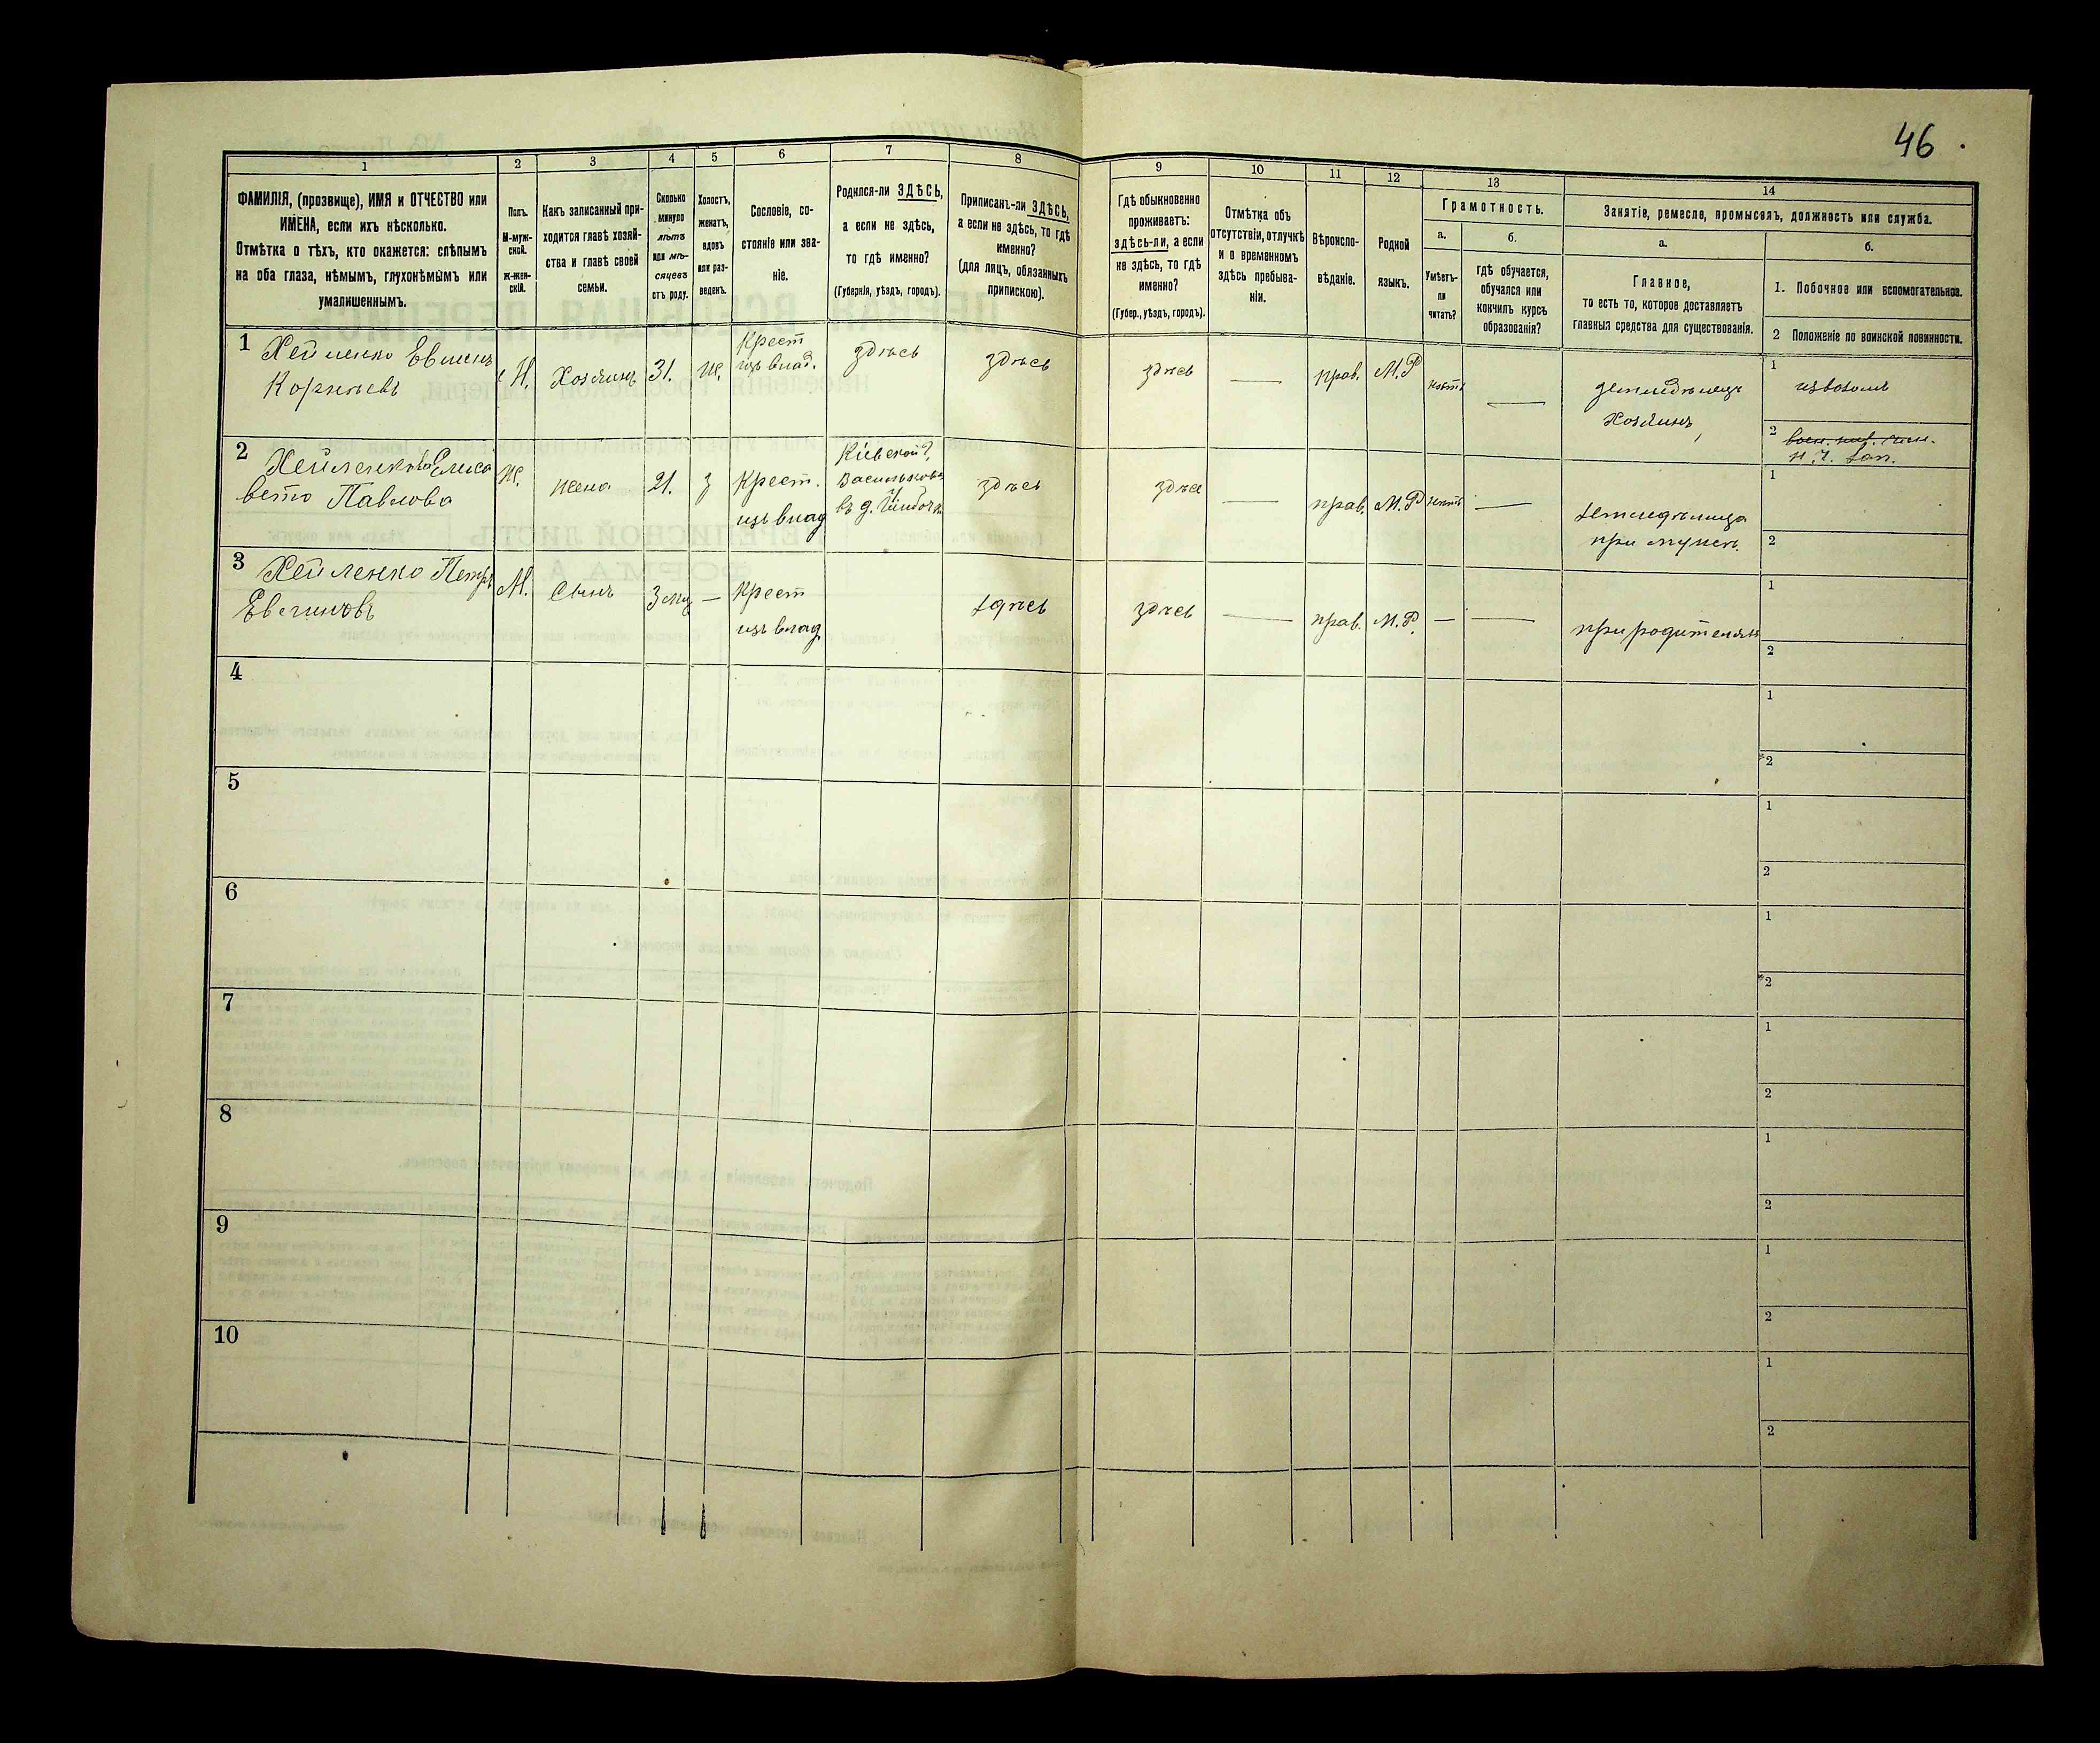 46
1
2
3
4
5
6
7
8
9
10
11
12
13
14
ФАМИЛІЯ, (прозвище), ИМЯ и ОТЧЕСТВО или
ИМЕНА, если ихъ нѣсколько.
Отмѣтка о тѣхъ, кто окажется: слѣпымъ
на оба глаза, нѣмымъ, глухонѣмымъ или
умалишеннымъ.
Полъ.
М-муж-
ской.
Ж-жен-
скій.
Какъ записанный при-
ходится главѣ хозяй-
ства и главѣ своей
семьи.
Сколько
минуло
лѣтъ
или мѣ-
сяцевъ
отъ роду.
Холостъ,
женатъ,
вдовъ
или раз-
веденъ.
Сословіе, со-
стояніе или зва-
ніе.
Родился-ли ЗДѢСЬ,
а если не здѣсь,
то гдѣ именно?
(Губернія, уѣздъ, городъ).
Приписанъ-ли ЗДѢСЬ,
а если не здѣсь, то гдѣ
именно?
(для лицъ, обязанныхъ
припискою).
Гдѣ обыкновенно
проживаетъ:
здѣсь-ли, а если
не здѣсь, то гдѣ
именно?
(Губер., уѣздъ, городъ).
Отмѣтка объ
отсутствіи, отлучкѣ
и о временномъ
здѣсь пребыва-
ніи.
Вѣроиспо-
вѣданіе.
Родной
языкъ.
Грамотность.
а.
Умѣетъ-
ли
читать?
б.
гдѣ обучается,
обучался или
кончилъ курсъ
образованія?
Занятіе, ремесло, промыселъ, должность или служба.
а.
Главное,
то есть то, которое доставляетъ
главныя средства для существованія.
б.
1. Побочное или вспомогательное.
2 Положеніе по воинской повинности.
1
Хейленко
Корнѣевъ
М.
Хозяинъ
31.
ж.
Крест
изъ влад.
здѣсь
здѣсь
здѣсь
—
прав.
М.Р
нѣтъ
—
земледѣлецъ
Хозяинъ
1
извозомъ
2
н. ч. зап.
2
Хейленкова Елиса
вета Павлова
Ж.
жена
21.
з
Крест.
изъ влад
Кіевской г,
Васильков
въ д.
здѣсь
здѣсь
—
прав.
М.Р
нѣтъ
—
земледѣлица
при мужѣ.
1
2
3
Хейленко Петръ
М.
Сынъ
3 мц
—
Крест
изъ влад.
здѣсь
здѣсь
—
прав.
М.Р.
—
—
при родителяхъ
1
2
4
1
2
5
1
2
6
1
2
7
1
2
8
1
2
9
1
2
10
1
2